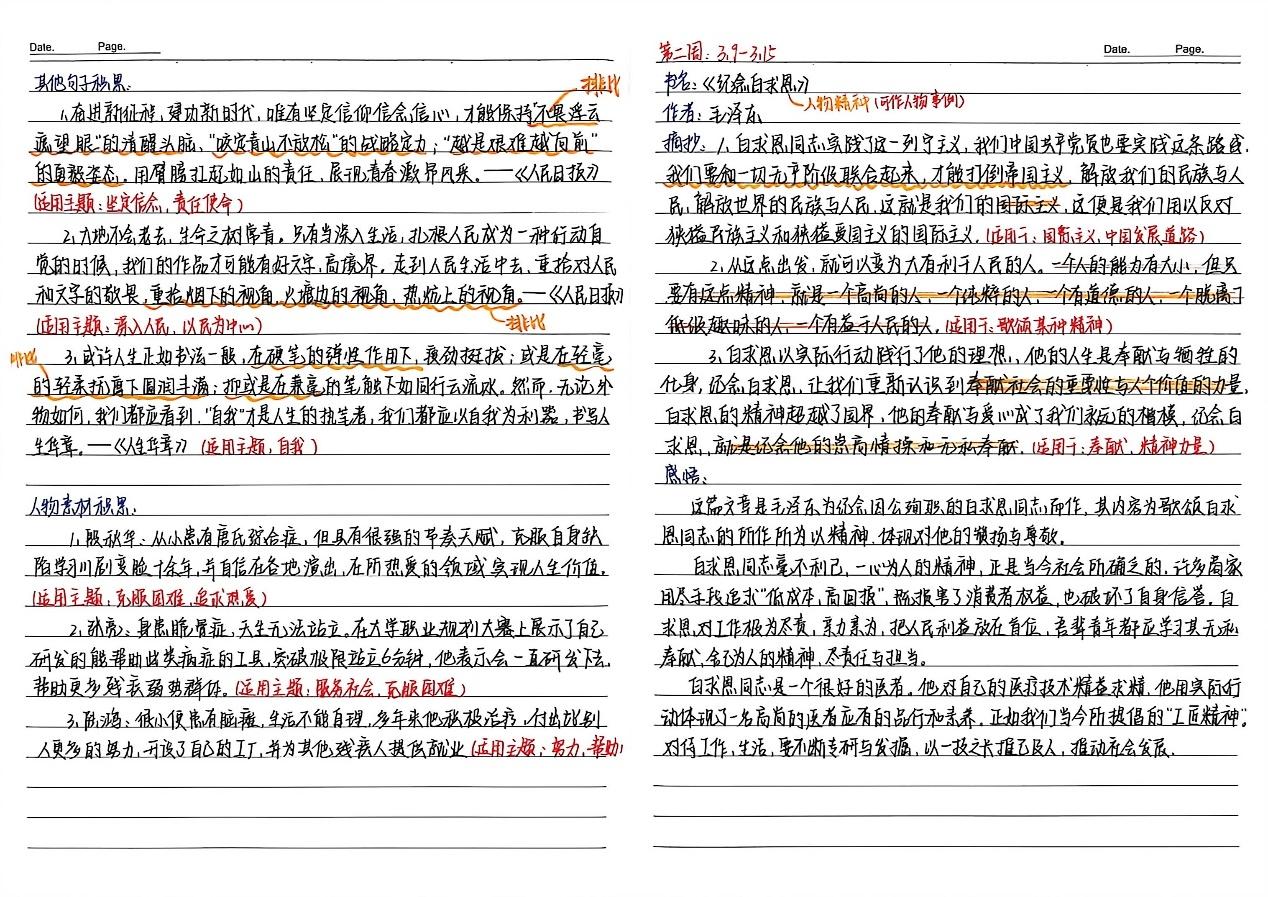 Date. Page.
其他句子积累:
排比
1.奋进新征程,建功新时代,唯有坚定信仰信念信心,才能保持"不畏浮云
遮望眼"的清醒头脑,"咬定青山不放松"的战略定力,"越是艰难越向前"
的勇毅姿态。用臂膀扛起如山的责任,展现青春激昂风采。——《人民日报》
(适用主题:坚定信念,责任使命)
2.大地不会老去,生命之树常青。只有当深入生活,扎根人民成为一种行动自
觉的时候,我们的作品才可能有好文字,高境界。走到人民生活中去,重拾对人民
和文字的敬畏,重拾烟下的视角,火塘边的视角,热炕上的视角。——《人民日报》
(适用主题:深入人民,以民为中心)
排比
排比
3.或许人生正如书法一般,在硬笔的弹性作用下,瘦劲挺拔;或是在轻毫
的轻柔抚育下圆润丰满;抑或是在兼毫的笔触下如同行云流水。然而,无论外
物如何,我们都应看到,"自我"才是人生的执笔者,我们都应以自我为利器,书写人
生华章。——《人生华章》(适用主题,自我)
人物素材积累:
1.殷秋华:从小患有唐氏综合症,但具有很强的节奏天赋,克服自身缺
陷学习川剧变脸十余年,并自信在各地演出,在所热爱的领域实现人生价值。
(适用主题:克服困难,追求热爱)
2.孙亮:身患脆骨症,天生无法站立。在大学职业规划大赛上展示了自己
研发的能帮助此类病症的工具,突破极限站立6分钟,他表示会一直研发下去,
帮助更多残疾弱势群体。(适用主题:服务社会,克服困难)
3.陈鸿:很小便患有脑瘫,生活不能自理,多年来他积极治疗,付出比别
人更多的努力,开设了自己的工厂,并为其他残疾人提供就业(适用主题:努力,帮助
第二周:3.9-3.15
Date. Page.
书名:《纪念白求恩》
人物精神(可作人物事例)
作者:毛泽东
摘抄:1.白求恩同志实践了这一列宁主义,我们中国共产党员也要实践这条路线.
我们要和一切无产阶级联合起来,才能打倒帝国主义,解放我们的民族与人
民,解放世界的民族与人民,这就是我们的国际主义,这便是我们用以反对
狭隘民族主义和狭隘爱国主义的国际主义.(适用于:国际主义,中国发展道路)
2.从这点出发,就可以变为大有利于人民的人。一个人的能力有大小,但只
要有这点精神,就是一个高尚的人,一个纯粹的人,一个有道德的人,一个脱离了
低级趣味的人,一个有益于人民的人。(适用于:歌颂某种精神)
3.白求恩以实际行动践行了他的理想,他的人生是奉献与牺牲的
化身,纪念白求恩,让我们重新认识到奉献社会的重要性与人个价值的力量,
白求恩的精神超越了国界,他的奉献与爱心成了我们永远的楷模,纪念白
求恩,就是纪念他的崇高情操和无私奉献.(适用于:奉献,精神力量)
感悟:
这篇文章是毛泽东为纪念因公殉职的白求恩同志而作,其内容为歌颂白求
恩同志的所作所为以精神.体现对他的赞扬与尊敬。
白求恩同志毫不利己,一心为人的精神,正是当今社会所确乏的,许多商家
用尽手段追求"低成本,高回报",既损害了消费者权益,也破坏了自身信誉。白
求恩对工作极为尽责,亲力亲为,把人民利益放在首位,吾辈青年都应学习其无私
奉献,舍己为人的精神,尽责任与担当。
白求恩同志是一个很好的医者。他对自己的医疗技术精益求精,他用实际行
动体现了一名高尚的医者应有的品行和素养。正如我们当今所提倡的"工匠精神",
对待工作,生活,要不断专研与发掘,以一技之长推己及人,推动社会发展.